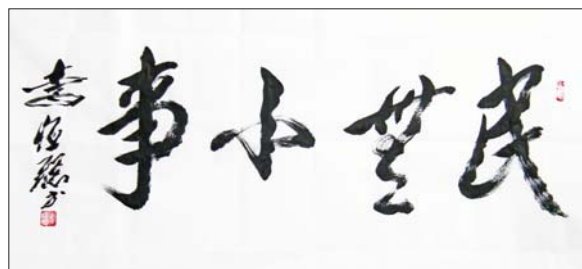 民無小事